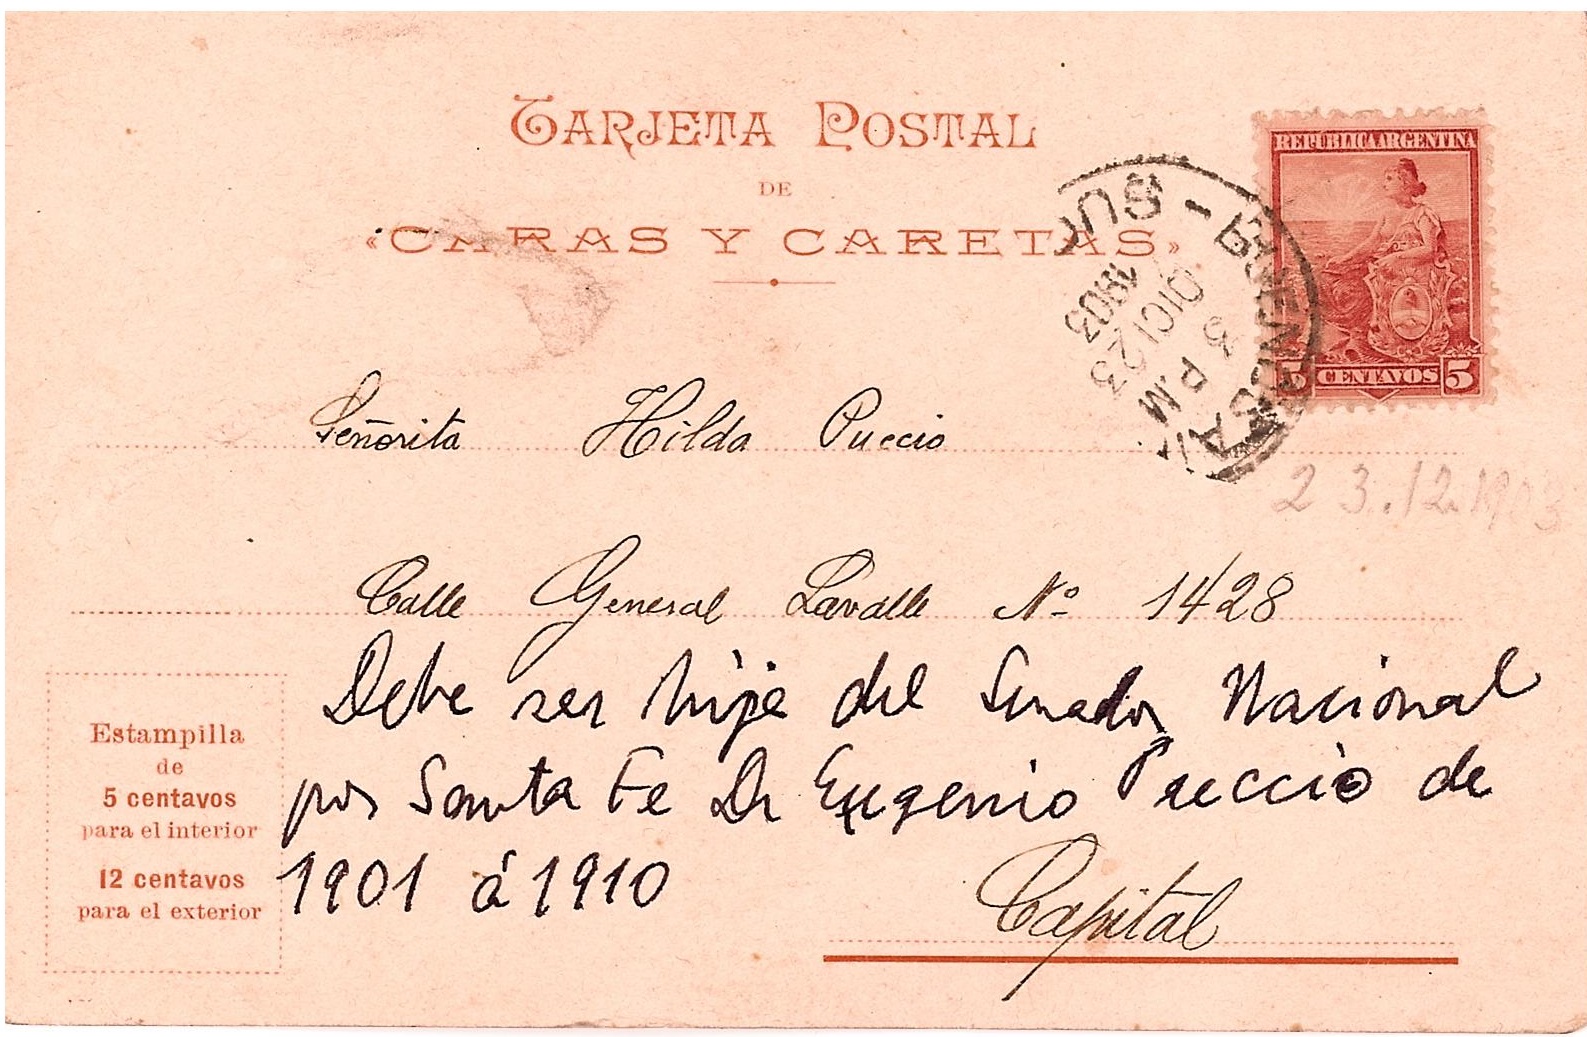 TARJETA POSTAL
DE
«CARAS Y CARETAS»
REPUBLICA ARGENTINA
5 CENTAVOS 5
BUENOS A - SUC
1903
DICI 23
3 P.M
23.12.1903
Señorita Hilda Puccio
Calle General Lavalle Nº 1428
Debe ser hija del Senador Nacional
por Santa Fe Dr Eugenio Puccio de
1901 á 1910
Capital
Estampilla
de
5 centavos
para el interior
12 centavos
para el exterior